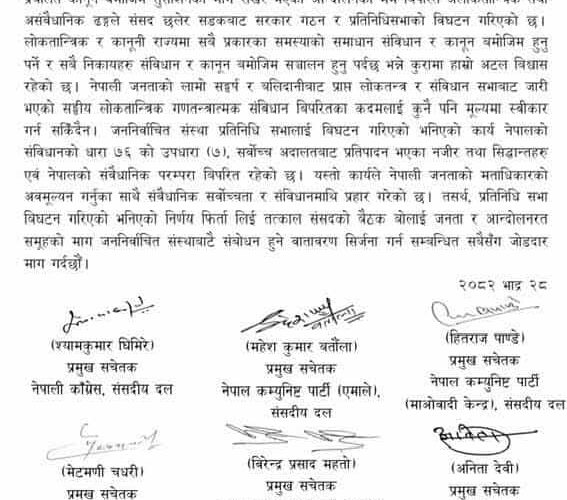 असंवैधानिक ढङ्गले संसद छलेर सडकबाट सरकार गठन र प्रतिनिधिसभाको विघटन गरिएको छ।
लोकतान्त्रिक र कानूनी राज्यमा सबै प्रकारका समस्याको समाधान संविधान र कानून बमोजिम हुनु
पर्ने र सबै निकायहरु संविधान र कानून बमोजिम सञ्चालन हुनु पर्दछ भन्ने कुरामा हाम्रो अटल विश्वास
रहेको छ। नेपाली जनताको लामो सङ्घर्ष र बलिदानीबाट प्राप्त लोकतन्त्र र संविधान सभाबाट जारी
भएको सङ्घीय लोकतान्त्रिक गणतन्त्रात्मक संविधान विपरितका कदमलाई कुनै पनि मूल्यमा स्वीकार
गर्न सकिँदैन। जननिर्वाचित संस्था प्रतिनिधि सभालाई विघटन गरिएको भनिएको कार्य नेपालको
संविधानको धारा ७६ को उपधारा (७), सर्वोच्च अदालतबाट प्रतिपादन भएका नजीर तथा सिद्धान्तहरु
एवं नेपालको संवैधानिक परम्परा विपरित रहेको छ। यस्तो कार्यले नेपाली जनताको मताधिकारको
अवमूल्यन गर्नुका साथै संवैधानिक सर्वोच्चता र संविधानमाथि प्रहार गरेको छ। तसर्थ, प्रतिनिधि सभा
विघटन गरिएको भनिएको निर्णय फिर्ता लिई तत्काल संसदको बैठक बोलाई जनता र आन्दोलनरत
समूहको माग जननिर्वाचित संस्थाबाटै संबोधन हुने वातावरण सिर्जना गर्न सम्बन्धित सबैसँग जोडदार
माग गर्दछौं।
२०८२ भाद्र २८
(श्यामकुमार घिमिरे)
प्रमुख सचेतक
नेपाली काँग्रेस, संसदीय दल
(महेश कुमार बर्तौला)
प्रमुख सचेतक
नेपाल कम्युनिष्ट पार्टी (एमाले),
संसदीय दल
(हितराज पाण्डे)
प्रमुख सचेतक
नेपाल कम्युनिष्ट पार्टी
(माओवादी केन्द्र), संसदीय दल
(मेटमणी चधरी)
प्रमुख सचेतक
(विरेन्द्र प्रसाद महतो)
प्रमुख सचेतक
(अनिता देवी)
प्रमुख सचेतक